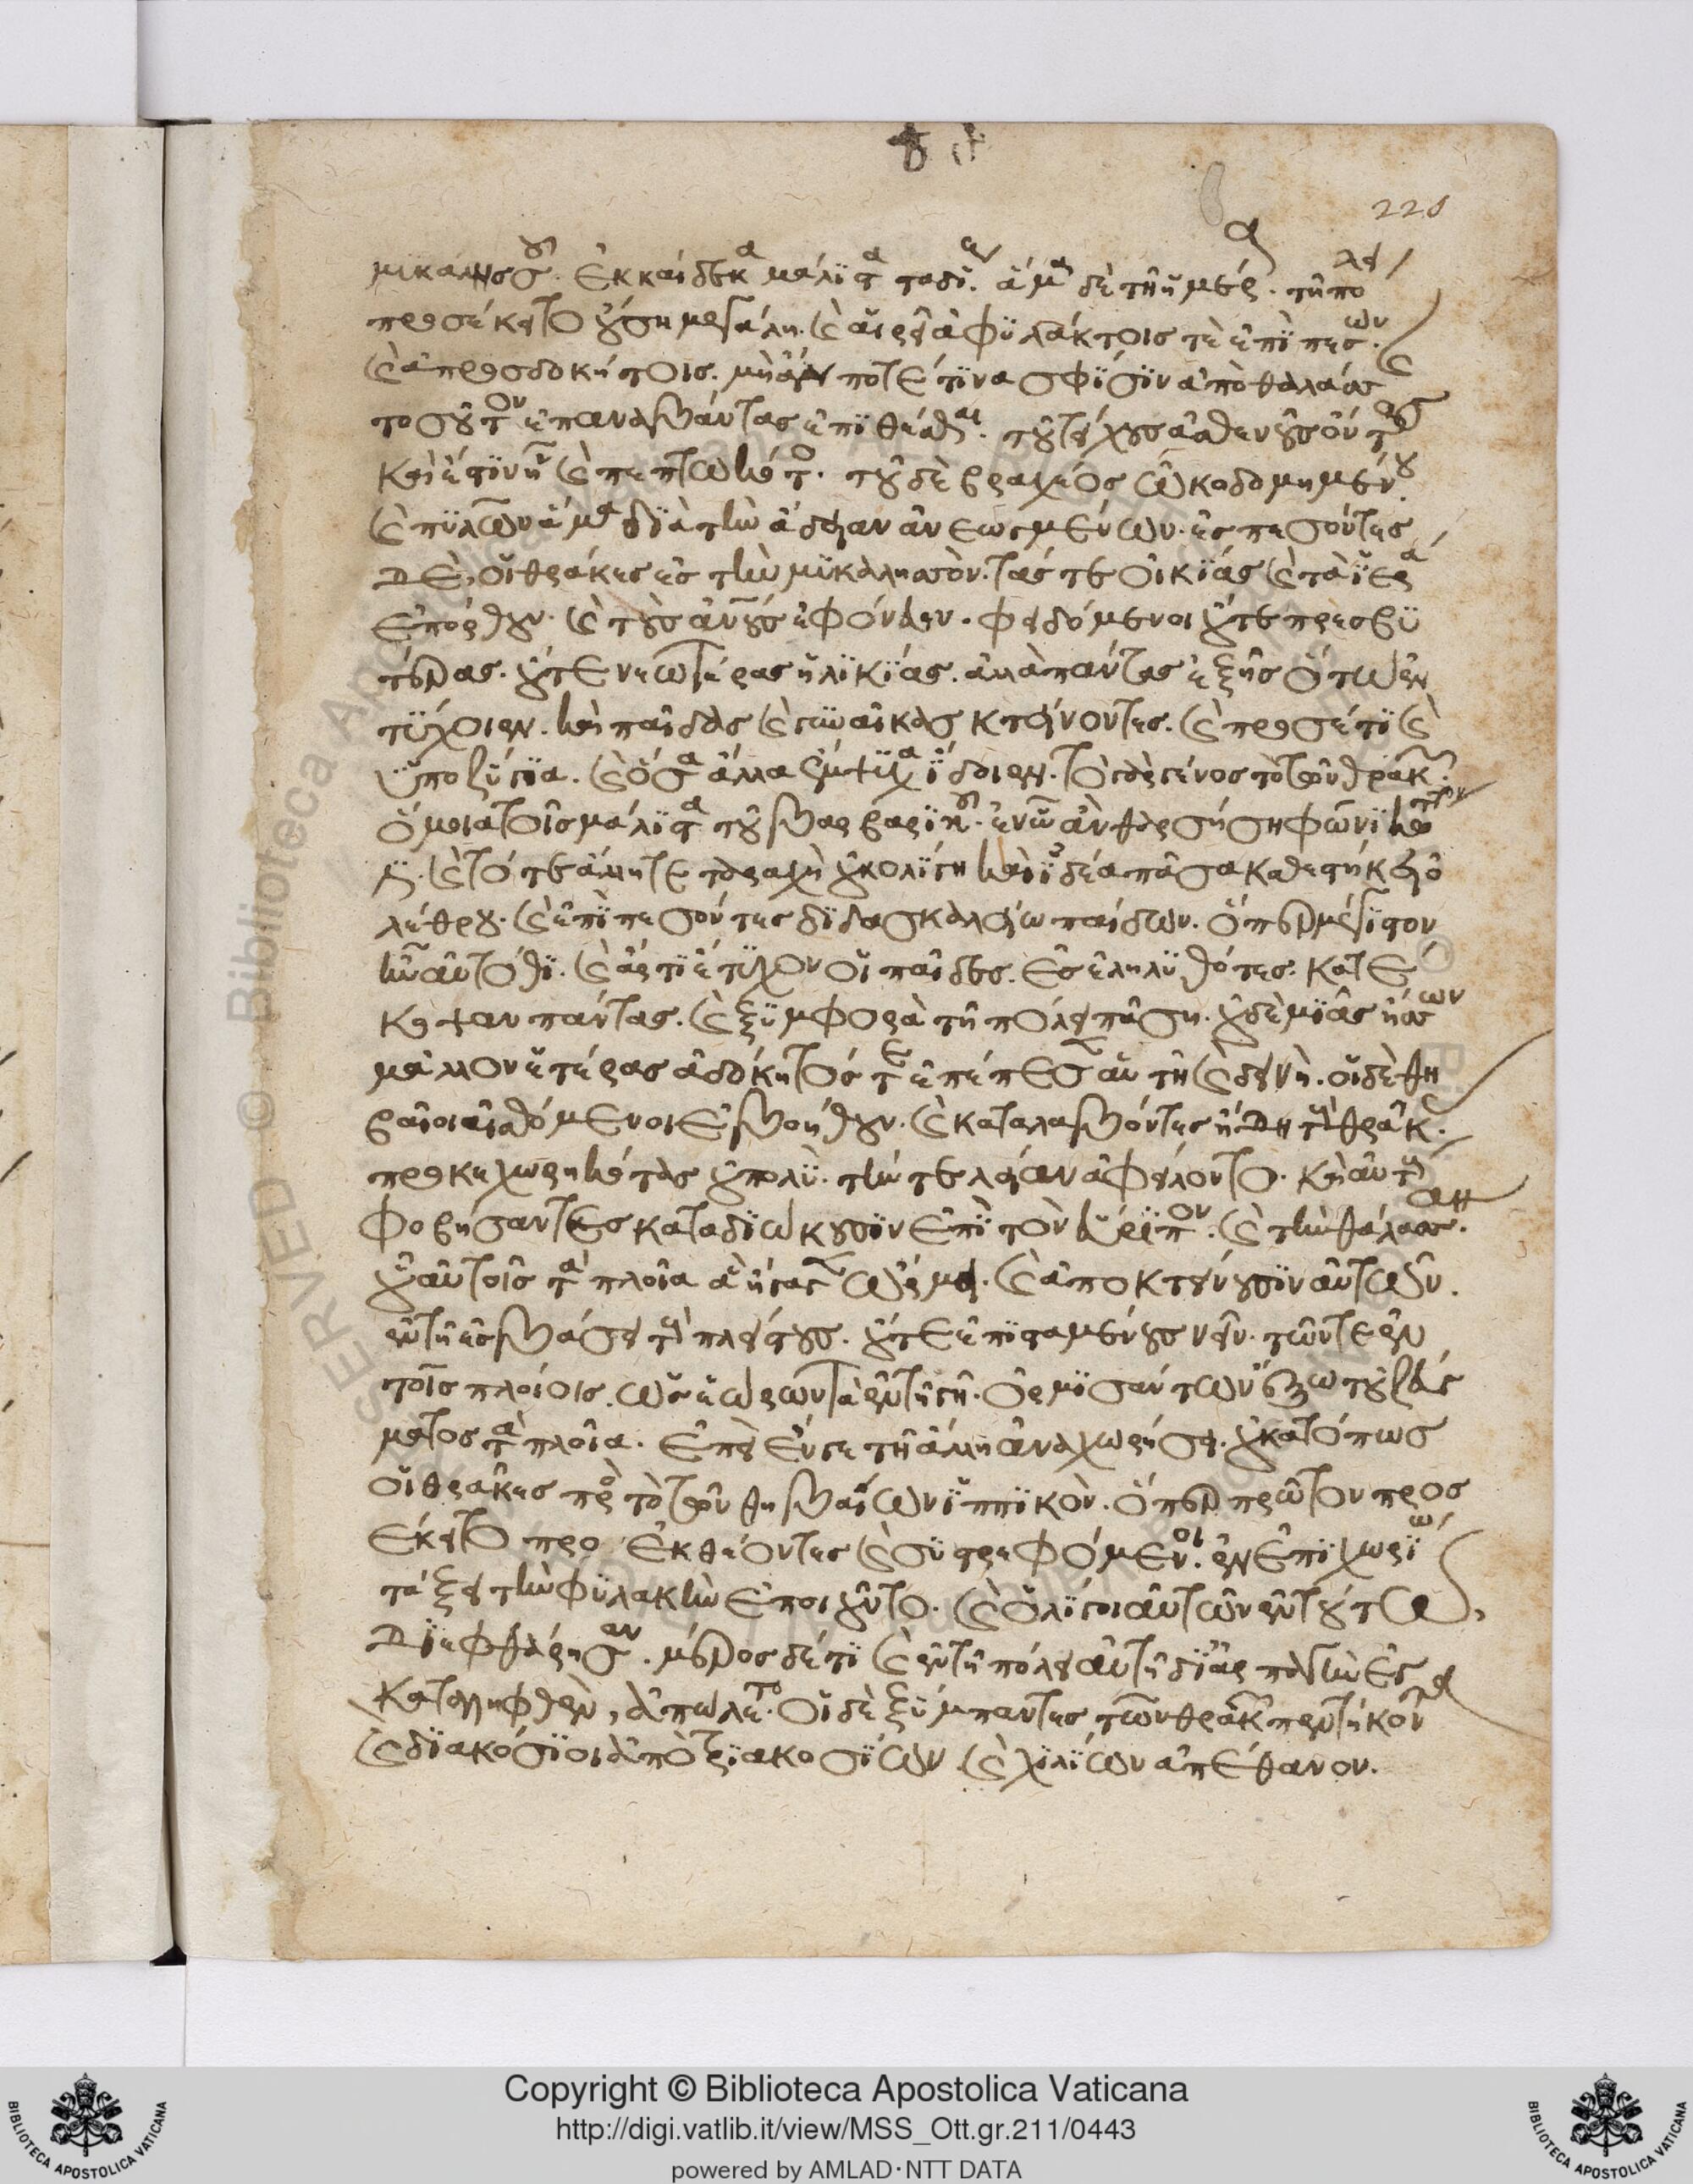 220
μυκαλησσοῦ. ἑκκαίδεκα μάλιστα σταδίους. ἅμα δὲ τῇ ἡμέρᾳ. τῇ πόλει
προσέκειτο οὔσῃ μεγάλῃ. καὶ αἱρεῖ ἀφυλάκτοις τὲ ἐπιπεσὼν.
καὶ ἀπροσδοκήτοις. μὴ ἄν ποτέ τινα σφίσιν ἀπὸ θαλάσσης
τοσοῦτον ἐπαναβάντας ἐπιθέσθαι. τοῦ τείχους ἀσθενοῦς ὄντος
καὶ ἔστιν ᾗ καὶ πεπτωκότος. τοῦ δὲ βραχέος ᾠκοδομημένου.
καὶ πυλῶν ἅμα διὰ τὴν ἄδειαν ἀνεωγμένων. ἐσπεσόντες
δὲ, οἱ θρᾶκες ἐς τὴν μυκαλησσὸν. τάς τε οἰκίας καὶ τὰ ἱερὰ
ἐπόρθουν. καὶ τοὺς ἀνθρώπους ἐφόνευον. φειδόμενοι οὔτε πρεσβυ
τέρας. οὔτε νεωτέρας ἡλικίας. ἀλλὰ πάντας ἑξῆς ὅτῳ ἐν
τύχοιεν. καὶ παῖδας καὶ γυναῖκας κτείνοντες. καὶ προσέτι καὶ
ὑποζύγια. καὶ ὅσα ἄλλα ἔμψυχα ἴδοιεν. τὸ γὰρ γένος τὸ τῶν θρακῶν
ὅμοια τοῖς μάλιστα τοῦ βαρβαρικοῦ. ἐν ᾧ ἂν θαρσήσῃ φονικώτατόν
ἐστι. καὶ τότε ἄλλη τε ταραχὴ οὐκ ὀλίγη καὶ ἰδέα πᾶσα καθεστήκει ὀ
λέθρου. καὶ ἐπιπεσόντες διδασκαλείῳ παίδων. ὅπερ μέγιστον
ἦν αὐτόθι. καὶ ἄρτι ἔτυχον οἱ παῖδες. ἐσεληλυθότες. κατέ
κοψαν πάντας. καὶ ξυμφορὰ τῇ πόλει πάσῃ. οὐδὲ μιᾶς ἥσσων
μᾶλλον ἑτέρας ἀδόκητός τε ἐπέπεσεν αὕτη καὶ δεινὴ. οἱ δὲ θη
βαῖοι αἰσθόμενοι ἐβοήθουν. καὶ καταλαβόντες ἤδη τοὺς θρᾷκας
προκεχωρηκότας οὐ πολὺ. τήν τε λείαν ἀφείλοντο. καὶ αὐτοὺς
φοβήσαντες καταδιώκουσιν ἐπὶ τὸν εὔριπον. καὶ τὴν θάλασσαν.
οὗ αὐτοῖς τὰ πλοῖα ἃ ἤγαγεν ὥρμει. καὶ ἀποκτείνουσιν αὐτῶν.
ἐν τῇ ἐσβάσει τοὺς πλείστους. οὔτε ἐπισταμένους νεῖν. τῶν τε ἐν
τοῖς πλοίοις. ὡς ἑώρων τὰ ἐν τῇ γῇ. ὁρμισάντων ἔξω τοῦ ζεύγ
ματος τὰ πλοῖα. ἐπεὶ ἔν γε τῇ ἄλλῃ ἀναχωρήσει. οὐκ ἀτόπως
οἱ θρᾷκες πρὸς τὸ τῶν θηβαίων ἱππικὸν. ὅπερ πρῶτον προσ
έκειτο προ ἐκθέοντές καὶ συστρεφόμενοι. ἐν ἐπιχωρίῳ
τάξει τὴν φυλακὴν ἐποιοῦντο. καὶ ὀλίγοι αὐτῶν ἐν τούτῳ
διεφθάρησαν. μέρος δέ τι καὶ ἐν τῇ πόλει αὐτῇ δι' ἁρπαγὴν ἐγ
καταληφθὲν, ἀπώλετο. οἱ δὲ ξύμπαντες τῶν θρακῶν πεντήκοντα
καὶ διακόσιοι ἀπὸ τριακοσίων καὶ χιλίων ἀπέθανον.
SERVED © Biblioteca Apostolica Vaticana
Copyright © Biblioteca Apostolica Vaticana
http://digi.vatlib.it/view/MSS_Ott.gr.211/0443
powered by AMLAD·NTT DATA
BIBLIOTECA APOSTOLICA VATICANA
BIBLIOTECA APOSTOLICA VATICANA